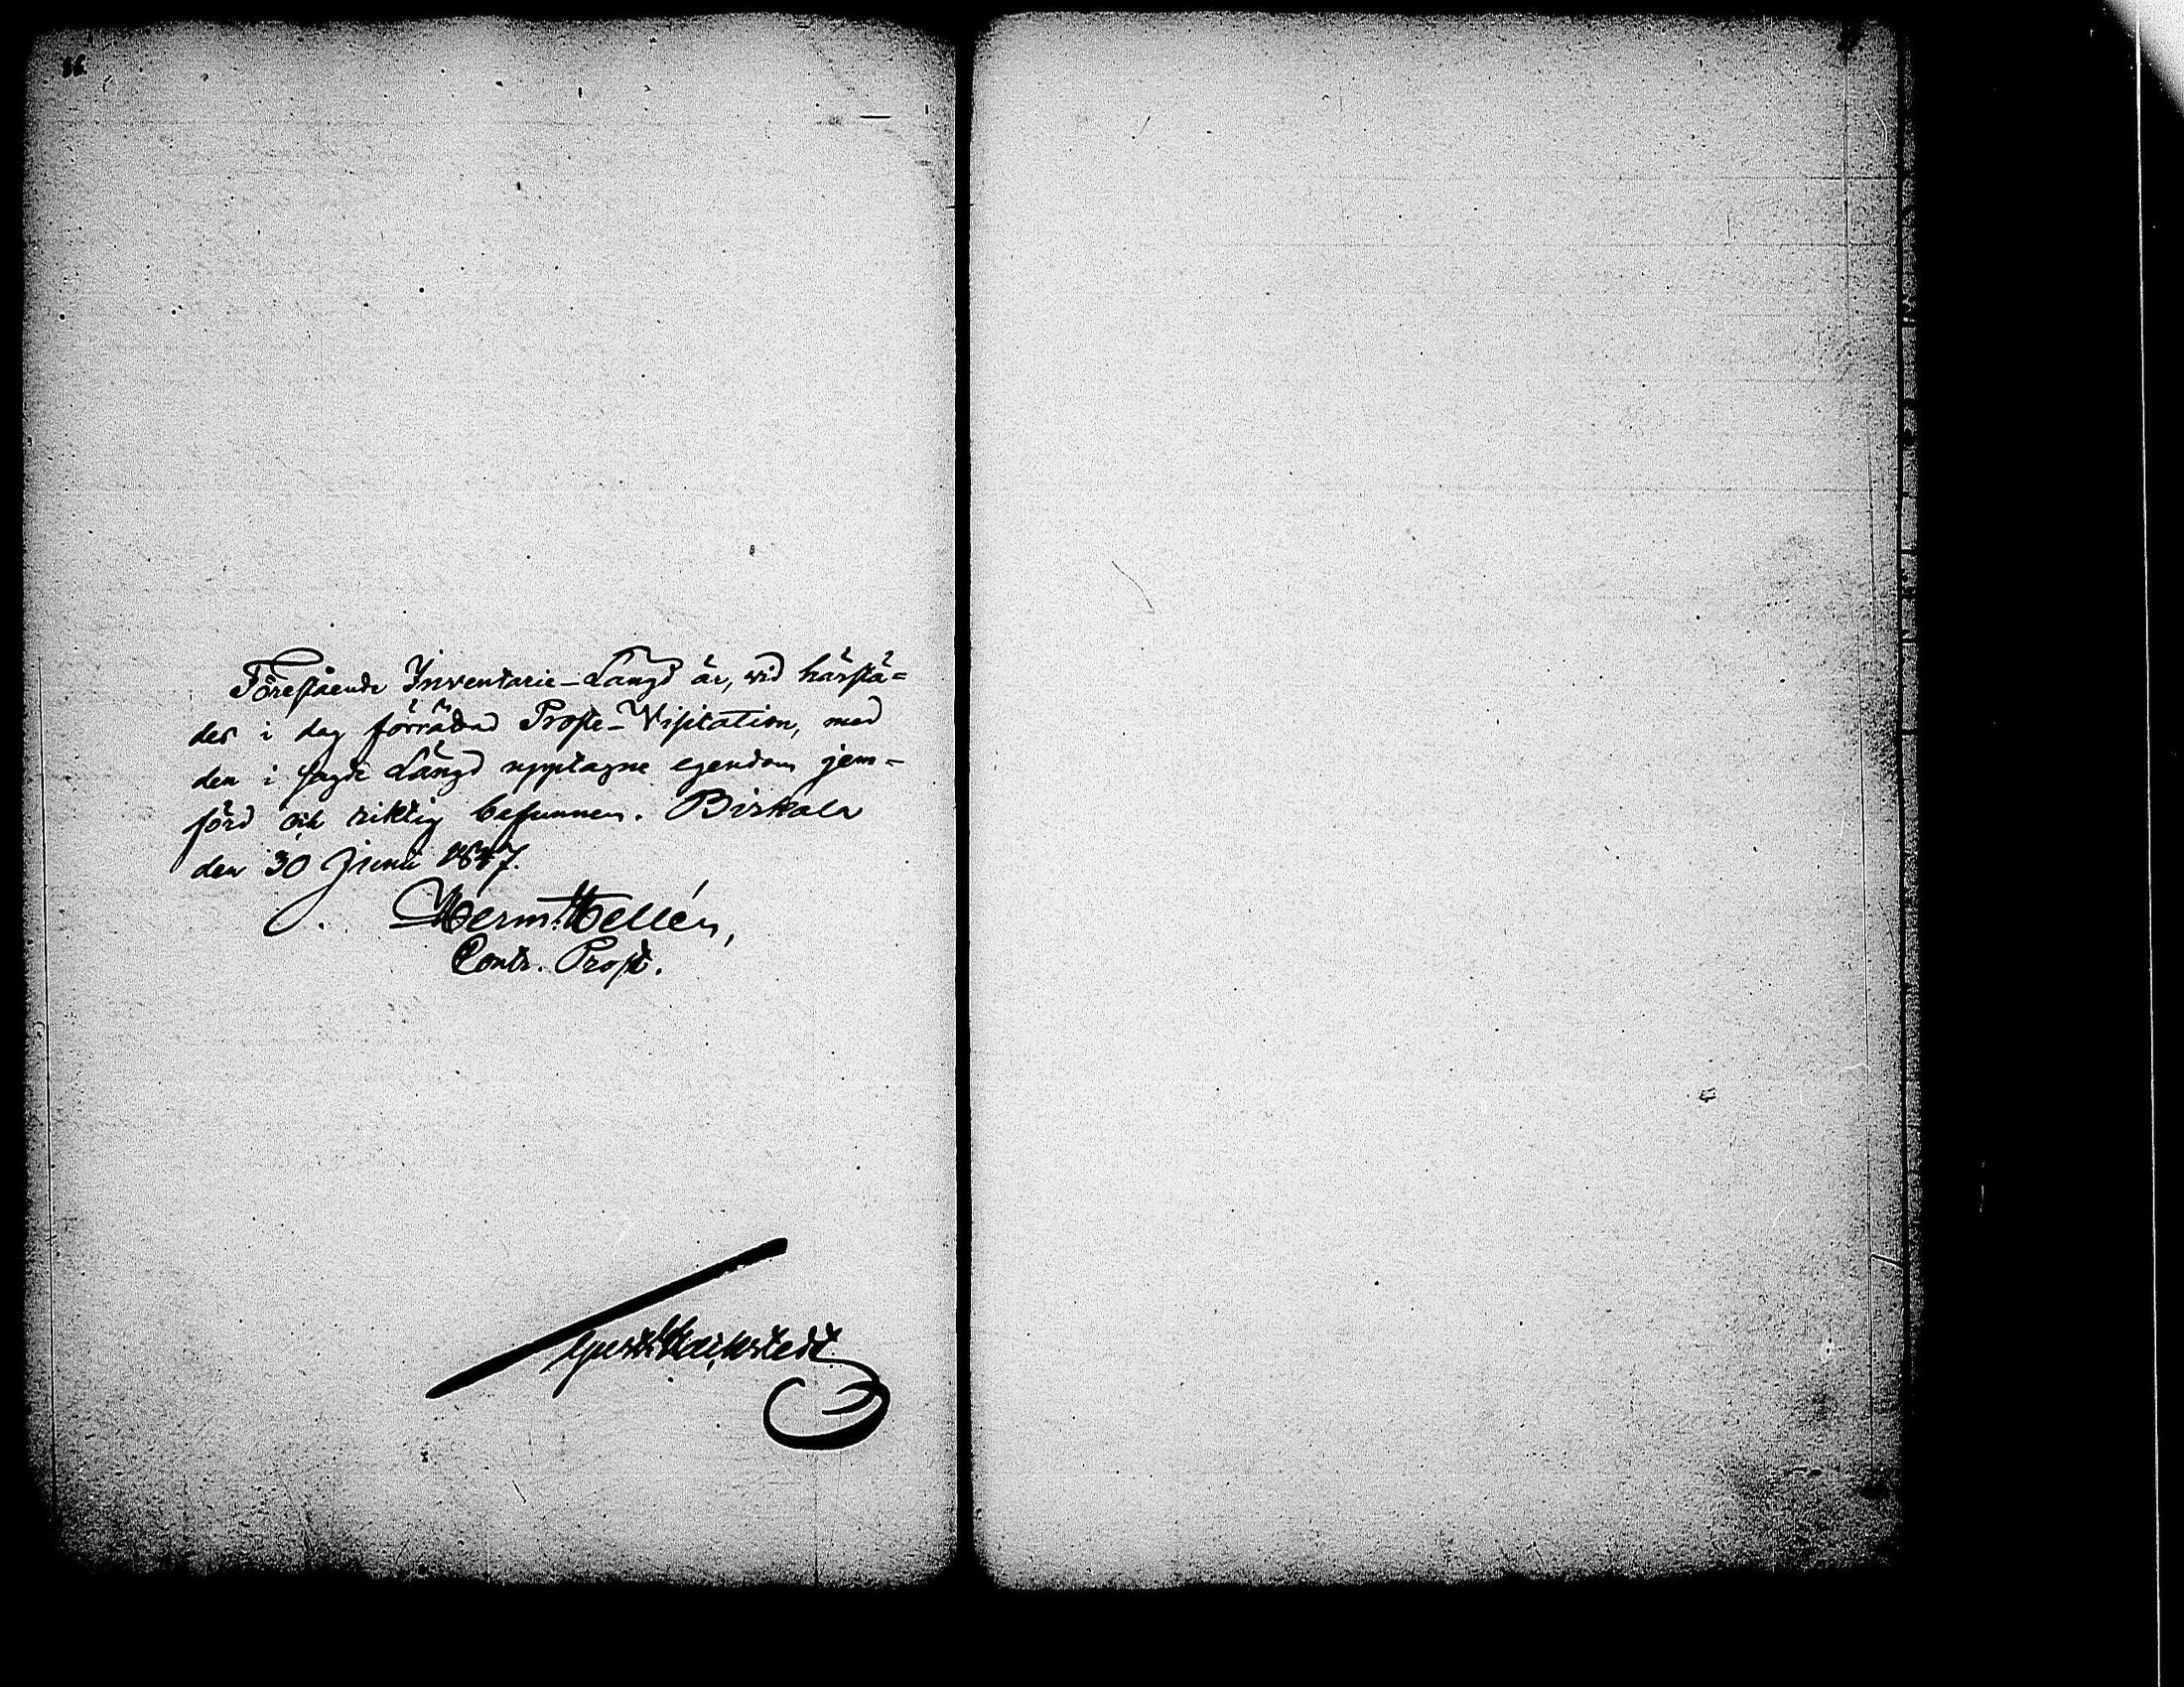 86.
Förestående Inventarie-Längd är, vid härstä=
des i dag förrättad Proste-Visitation, med
den i sagde Längd upptagne egendom jem=
förd och riktig befunnen. Birkala
den 30 Junii 1847.
Herm. Hellén,
Contr. Prost.